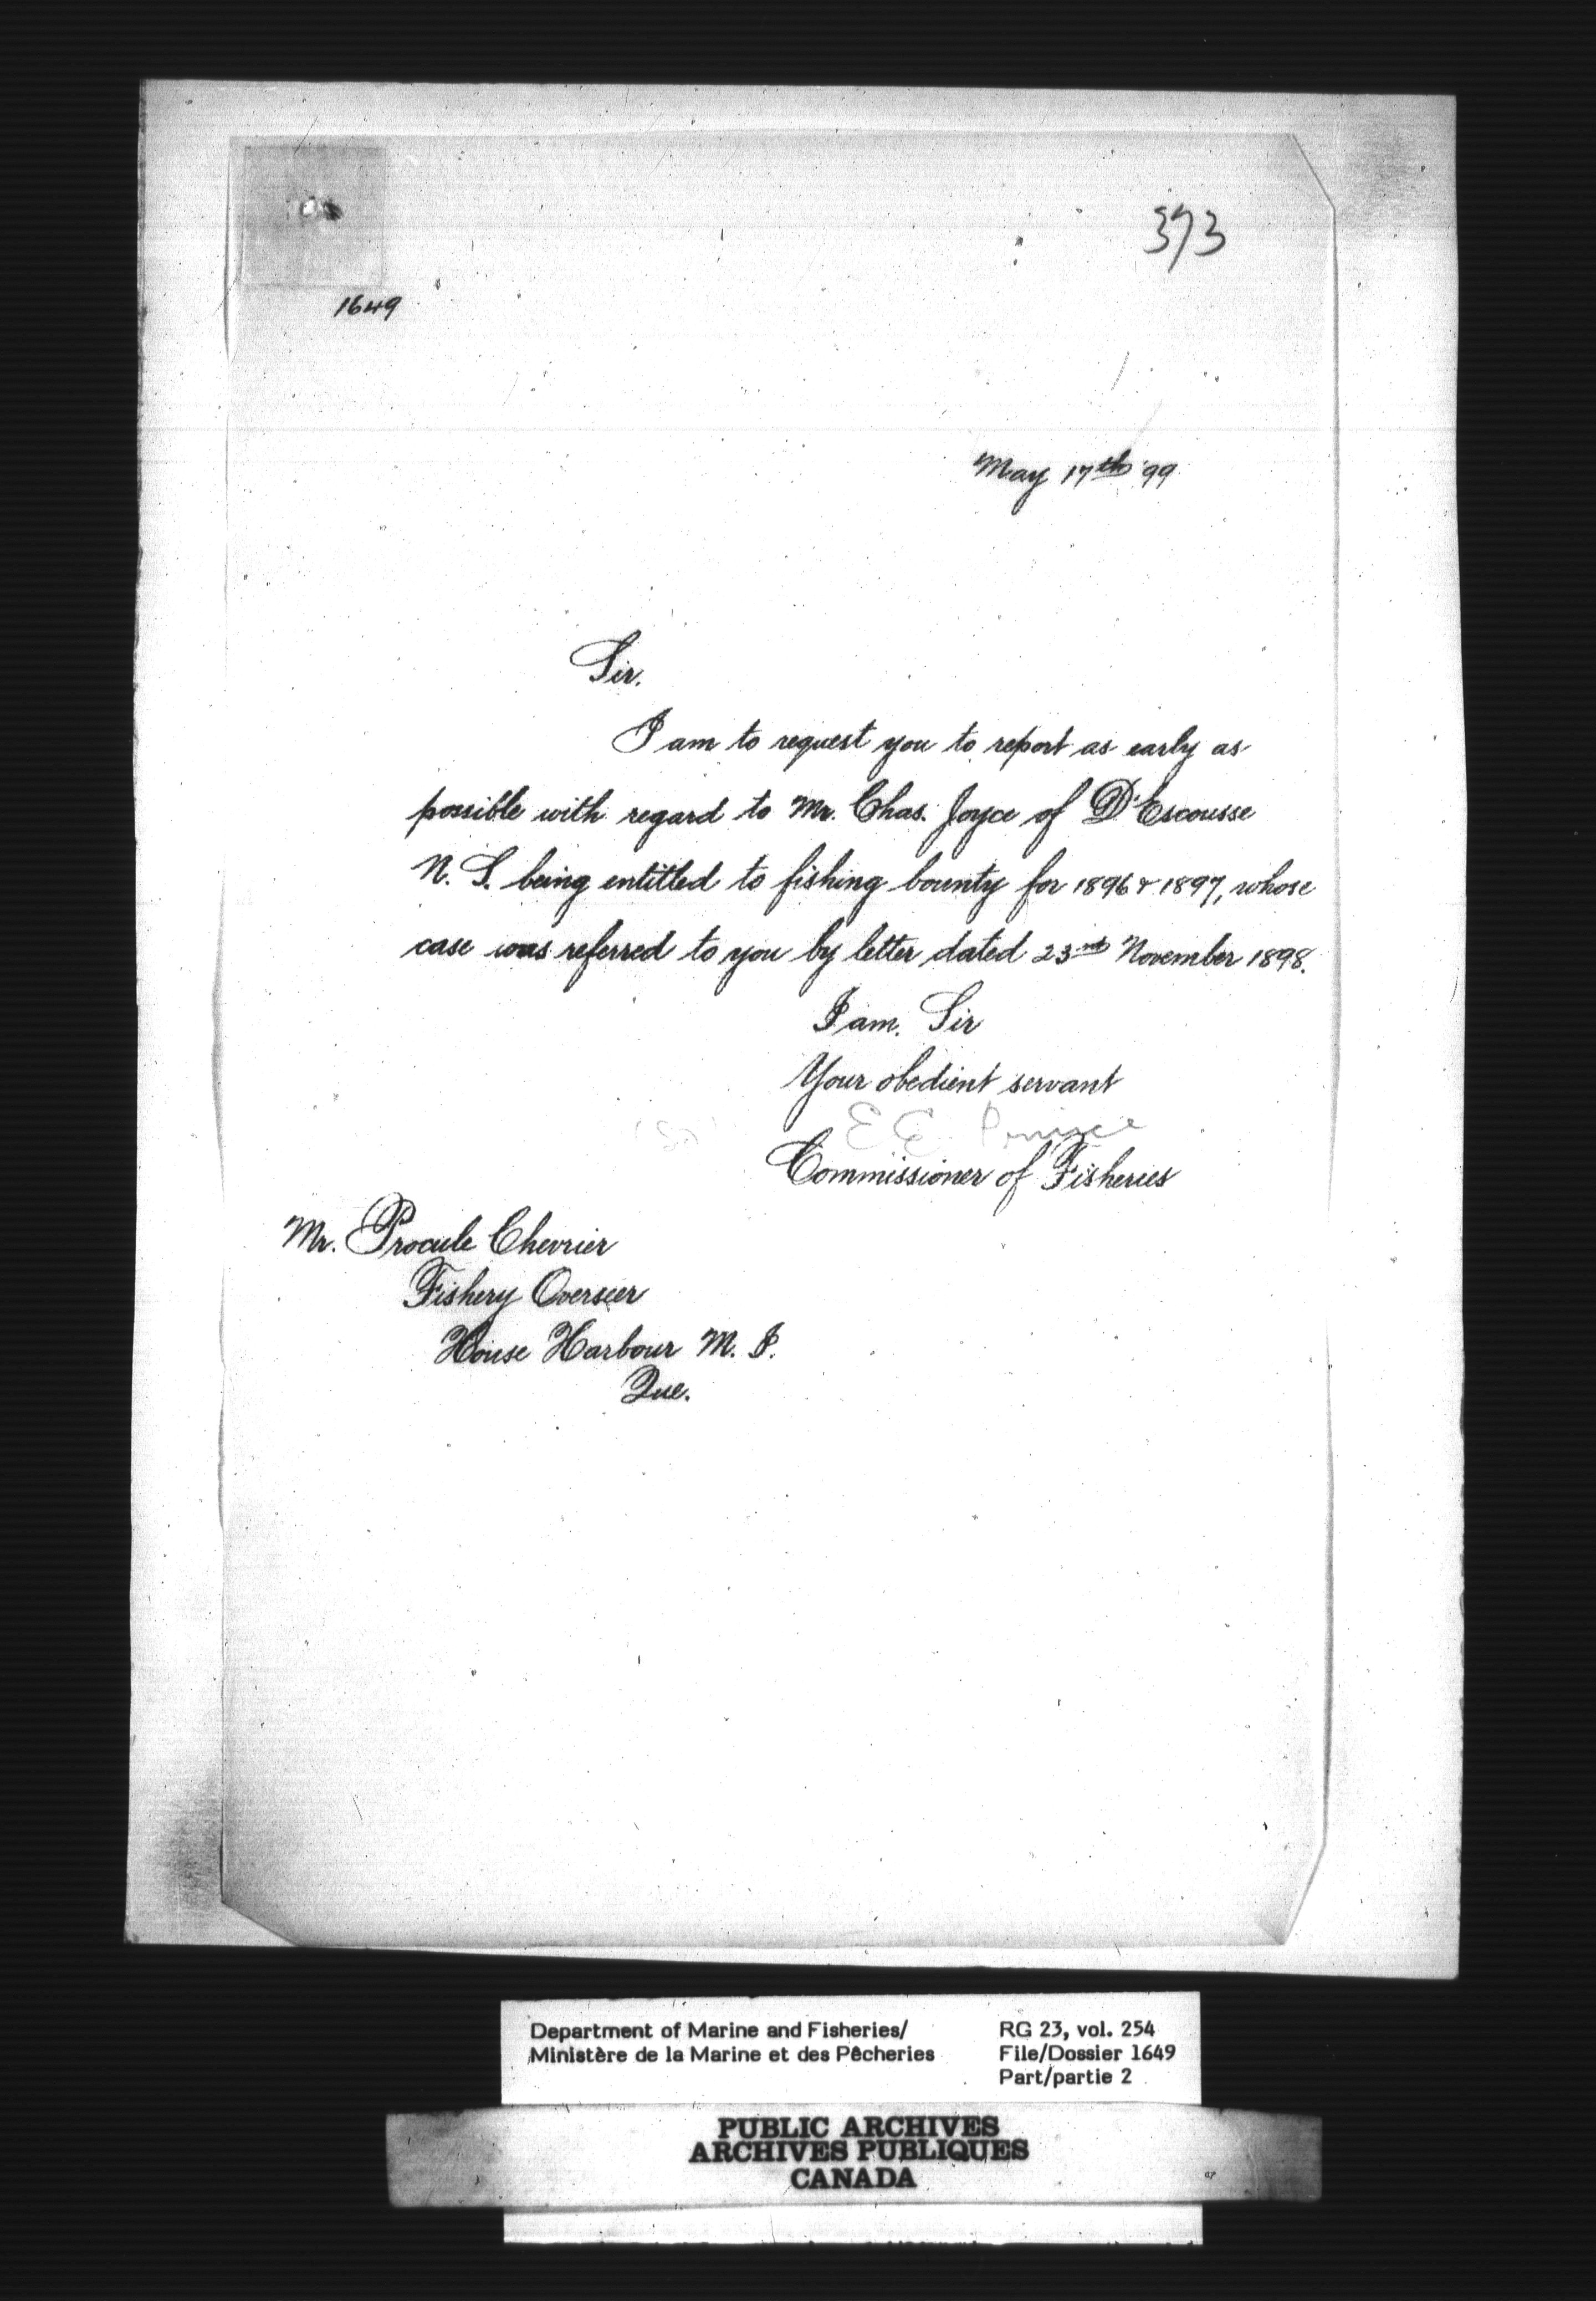 373
1649
May 17th '99
Sir.
I am to request you to report as early as
possible with regard to Mr. Chas. Joyce of D'Escousse
N. S. being entitled to fishing bounty for 1896 & 1897, whose
case was referred to you by letter dated 23rd November 1898.
I am. Sir
Your obedient servant
E E Prince
Commissioner of Fisheries
Mr. Procule Chevrier
Fishery Overseer
House Harbour M. I.
Que.
Department of Marine and Fisheries/
Ministère de la Marine et des Pêcheries
RG 23, vol. 254
File/Dossier 1649
Part/partie 2
PUBLIC ARCHIVES
ARCHIVES PUBLIQUES
CANADA